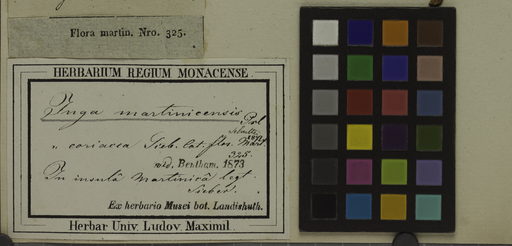 Flora martin. Nro. 325.
HERBARIUM REGIUM MONACENSE.
Inga martinicensis Prsl
" coriacea Sieb. Cat. flor. Mart
325.
vid. Bentham. 1873
In insulâ Martinicâ leg.
Sieber.
Ex herbario Musei bot. Landishuth.
Herbar Univ. Ludov. Maximil.